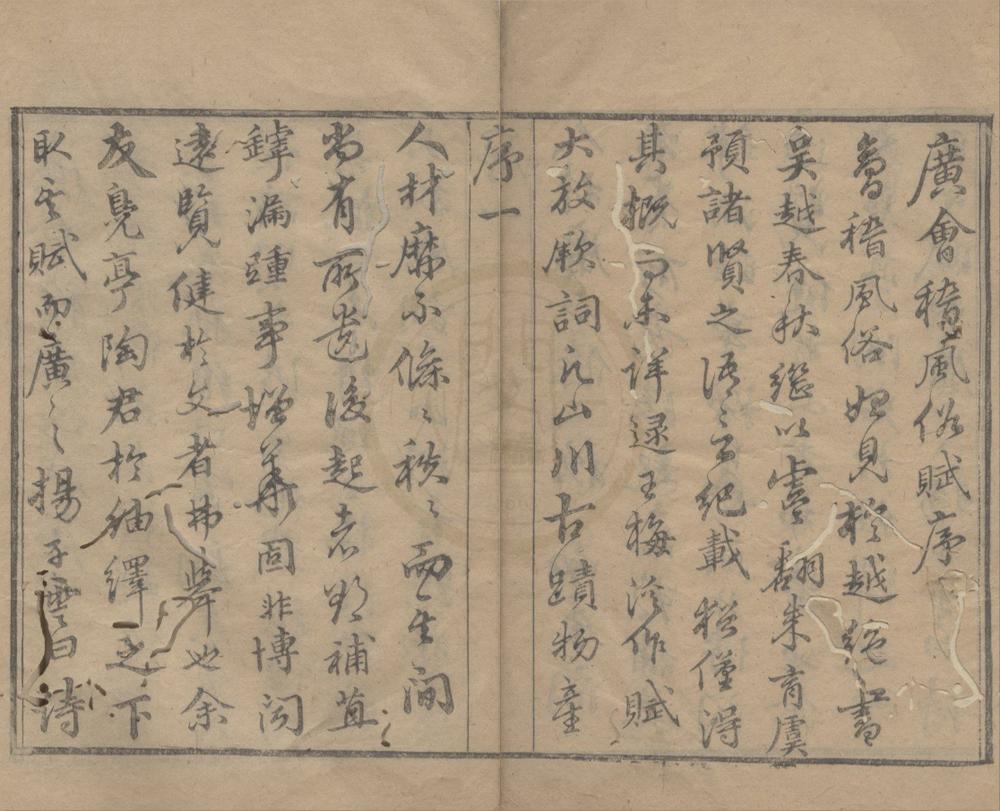 廣會稽風俗賦序
會稽風俗始見於越絕書
吳越春秋繼以虞翻朱育虞
預諸賢之語之紀載猶僅得
其概而未詳逮王梅溪作賦
大放厥詞凡山川古蹟物產
序一
人材靡不條〻秩〻而其間
尚有所遺後起者欲補苴
罅漏踵事增華固非博聞
遠覽健於文者弗能也余
友鳧亭陶君於紬繹之下
取其賦而廣之〻揚子雲曰詩